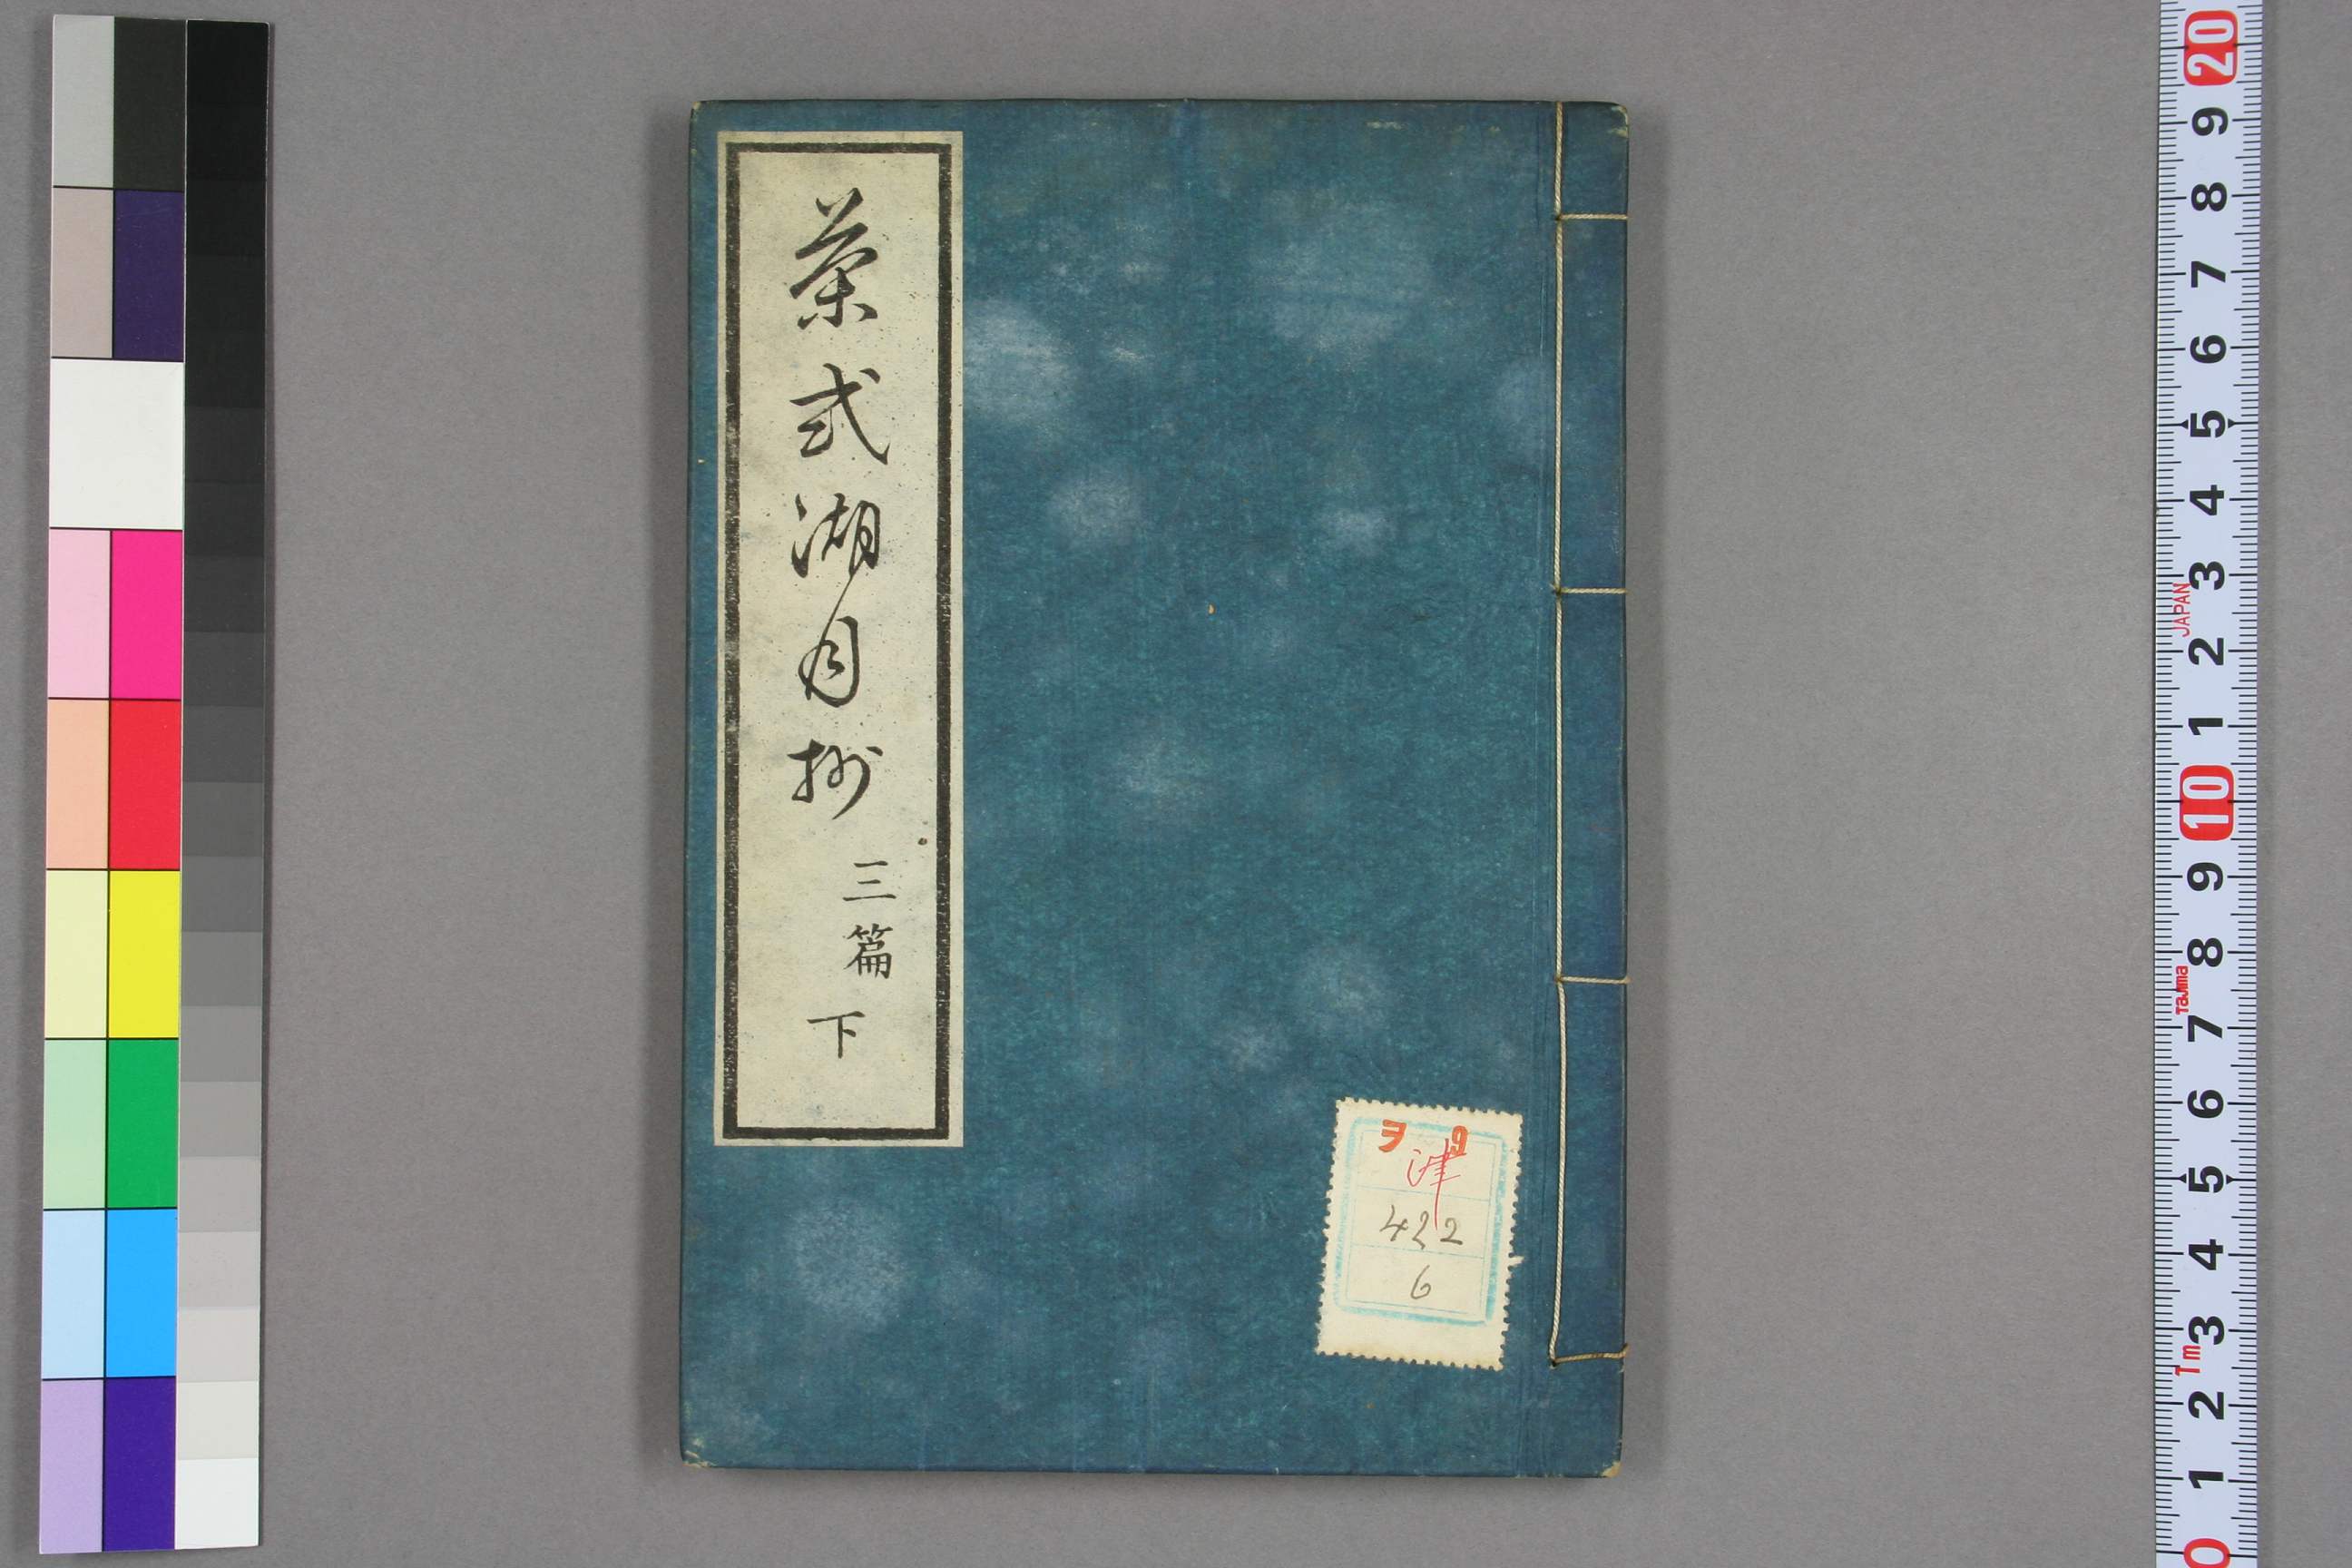 茶式湖月抄
三篇
下
ヲ 9
津
422
6
20
9
8
7
6
5
4
3
2
1
10
9
8
7
6
5
4
3
2
1
0
JAPAN
Tajima
1m